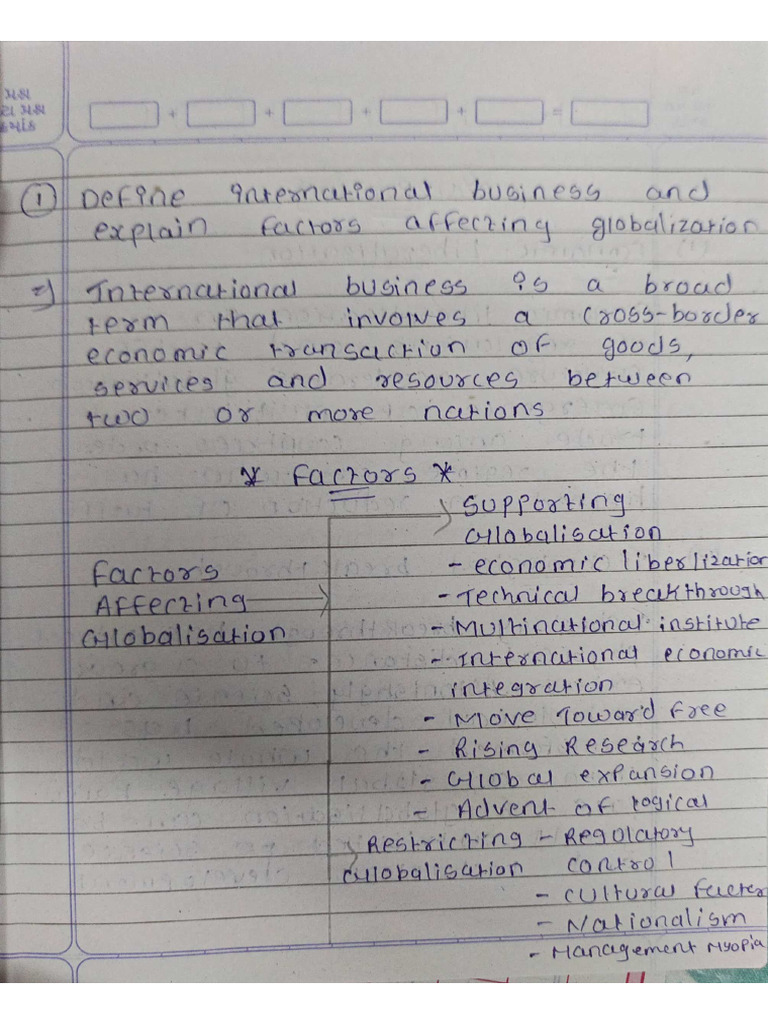 + + + + =
① Define international business and
explain factors affecting globalization
=> International business is a broad
term that involves a cross-border
economic transaction of goods,
services and resources between
two or more nations.
* Factors *
Supporting
Globalisation
Factors
Affecting
Globalisation
- economic liberlization
- Technical breakthrough
- Multinational institute
- International economic
integration
- Move Toward free
- Rising Research
- Global expansion
- Advent of logical
Restricting
Globalisation
- Regulatory
control
- cultural factor
- Nationalism
- Management Myopia